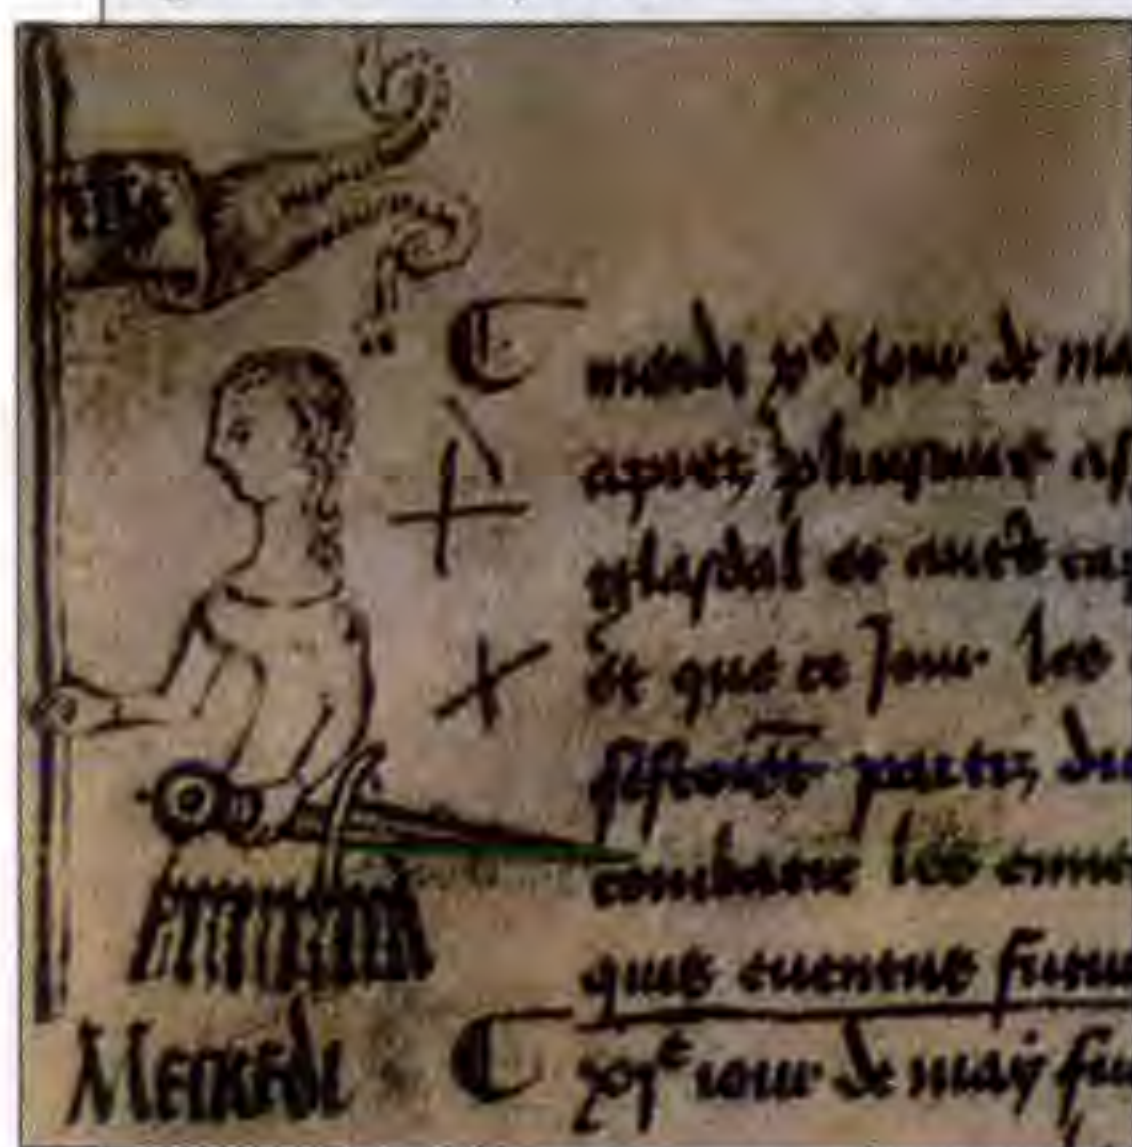 mardi xᵉ jour de ma
apres plusieurs as
glasdal et aues cap
et que ce jour les
parti du
combatre les enne
quis euentus futur
Mercredi xjᵉ iour de may fu